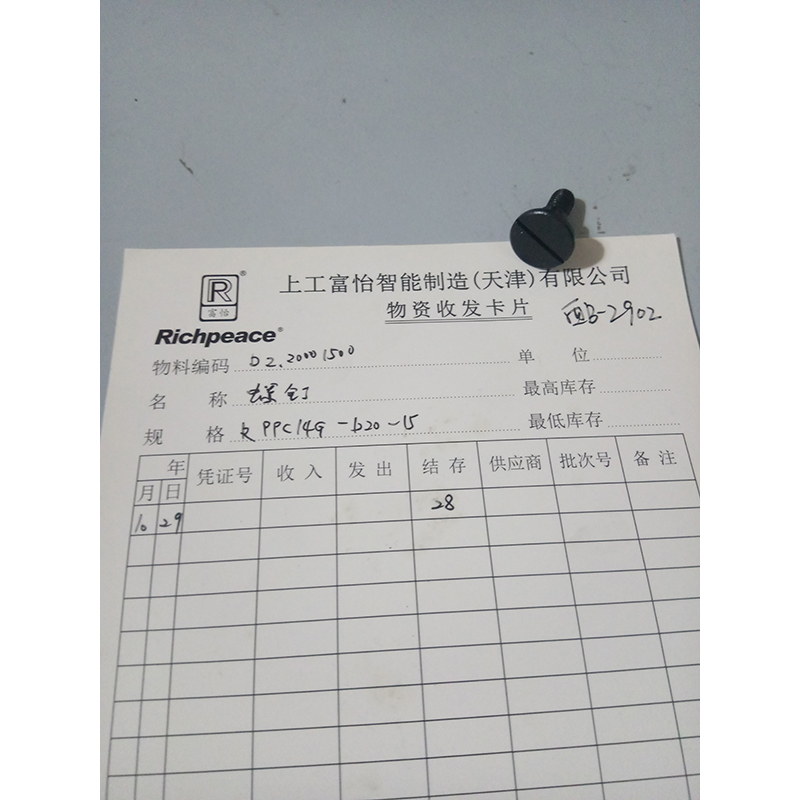 R®
富怡
Richpeace®
上工富怡智能制造(天津)有限公司
物资收发卡片
-2902
物料编码 D2.20001500 单 位
名 称 螺钉 最高库存
规 格 PPC14G-b20-15 最低库存
年 凭证号 收入 发出 结存 供应商 批次号 备注
月 日
10 29 28